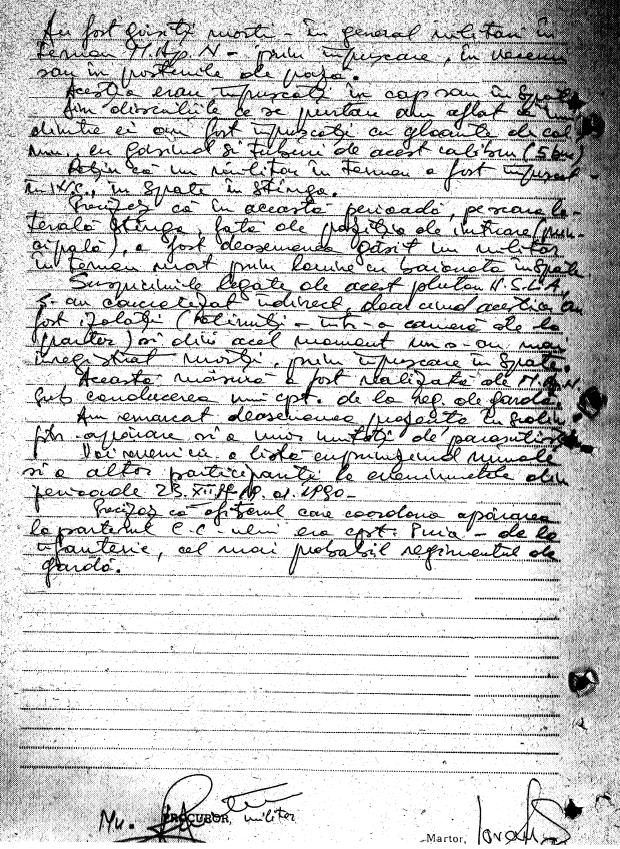 Au fost găsiți morți - în general militari în
termen M.Ap.N - prin împușcare, în
sau în posturile de pază.
Aceștia erau împușcați în cap sau în spate
Din discuțiile ce se purtau am aflat că unii
dintre ei au fost împușcați cu gloanțe de cal
mm. eu găsind și tuburi de acest calibru (5 mm)
Rețin că un militar în termen a fost împușcat
în spate în stînga.
Precizez că în această perioadă, pe scara la-
terală stînga, față de poziția de intrare (prin-
cipală), a fost deasemenea găsit un militar
în termen mort prin lovire cu baioneta în spate.
Suspiciunile legate de acest pluton U.S.L.A.
s-au concretizat indirect, deoarece aceștia au
fost izolați (reținuți - într-o cameră de la
parter) și din acel moment nu s-au mai
înregistrat morți, prin împușcare în spate.
Această măsură a fost realizată de M.Ap.N.
sub conducerea unui cpt. de la reg. de gardă.
Am remarcat deasemenea
apărare și a unor unități de parașutiști
Voi remite o listă cuprinzînd numele
și a altor participanți la evenimentele din
perioada 23.XII 01.1990 -
Precizez că ofițerul care coordona apărarea
la parterul C.C.-ului era cpt. - de la
infanterie, cel mai probabil regimentul de
gardă.
PROCUROR, militar
Martor,